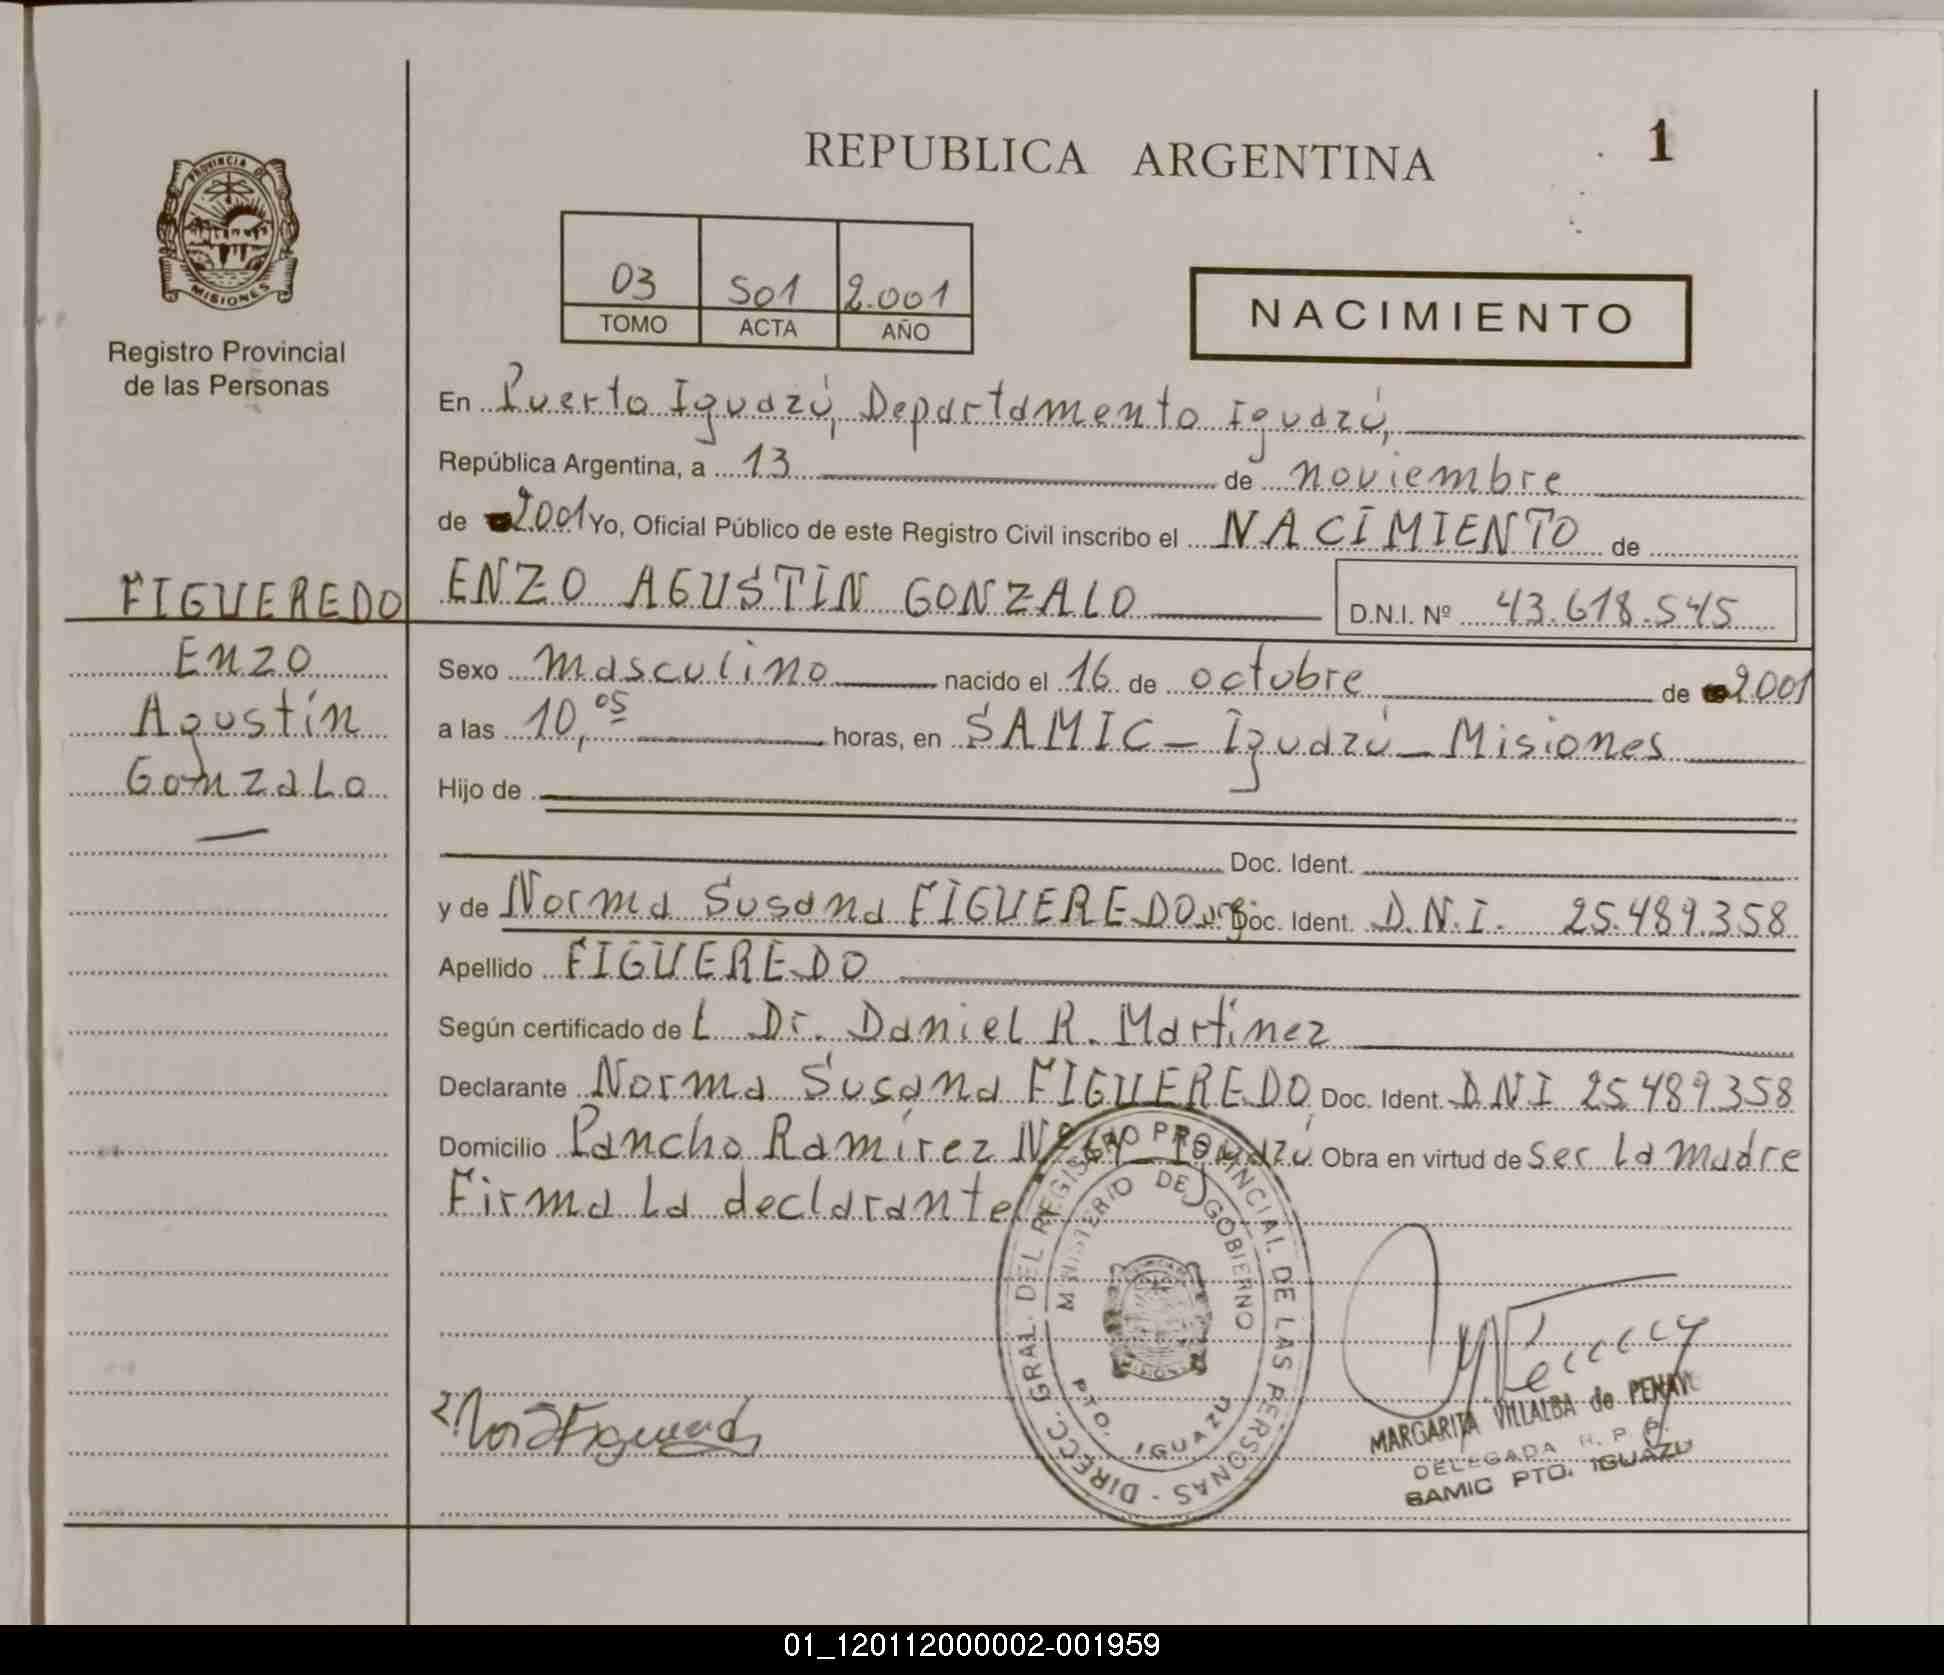 REPUBLICA ARGENTINA
1
PROVINCIA DE
MISIONES
Registro Provincial
de las Personas
03 501 2.001
TOMO ACTA AÑO
NACIMIENTO
En Puerto Iguazú, Departamento Iguazú,
República Argentina, a 13 de noviembre
de 2001 Yo, Oficial Público de este Registro Civil inscribo el NACIMIENTO de
ENZO AGUSTIN GONZALO D.N.I. Nº 43.618.545
FIGUEREDO
Enzo
Agustín
Gonzalo
Sexo masculino nacido el 16 de octubre de 2001
a las 10,05 horas, en SAMIC - Iguazú - Misiones
Hijo de
Doc. Ident.
y de Norma Susana FIGUEREDO Doc. Ident. D.N.I. 25.489.358
Apellido FIGUEREDO
Según certificado de L Dr. Daniel R. Martínez
Declarante Norma Susana FIGUEREDO Doc. Ident. DNI 25489.358
Domicilio Pancho Ramírez Iguazú Obra en virtud de ser la madre
Firma la declarante
DIRECC. GRAL. DEL REGISTRO PROVINCIAL DE LAS PERSONAS -
MINISTERIO DE GOBIERNO
PTO. IGUAZU
MARGARITA VILLALBA de
DELEGADA R. P. P.
SAMIC PTO. IGUAZU
01_120112000002-001959